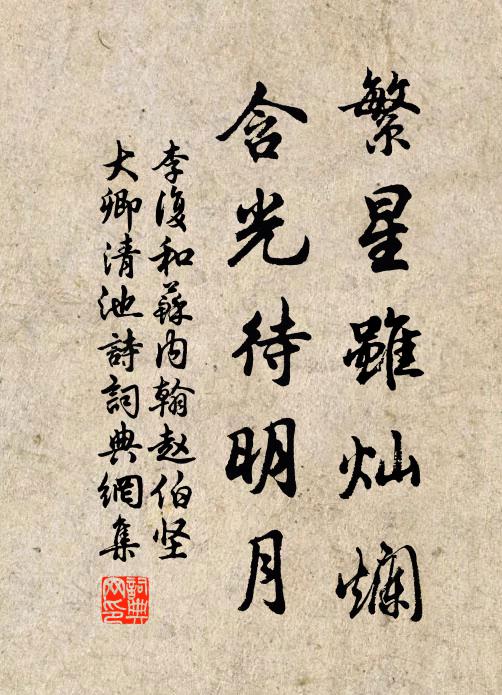 繁星雖灿爛
含光待明月
李復和蘇内翰赵伯坚
大卿清池詩詞典網集